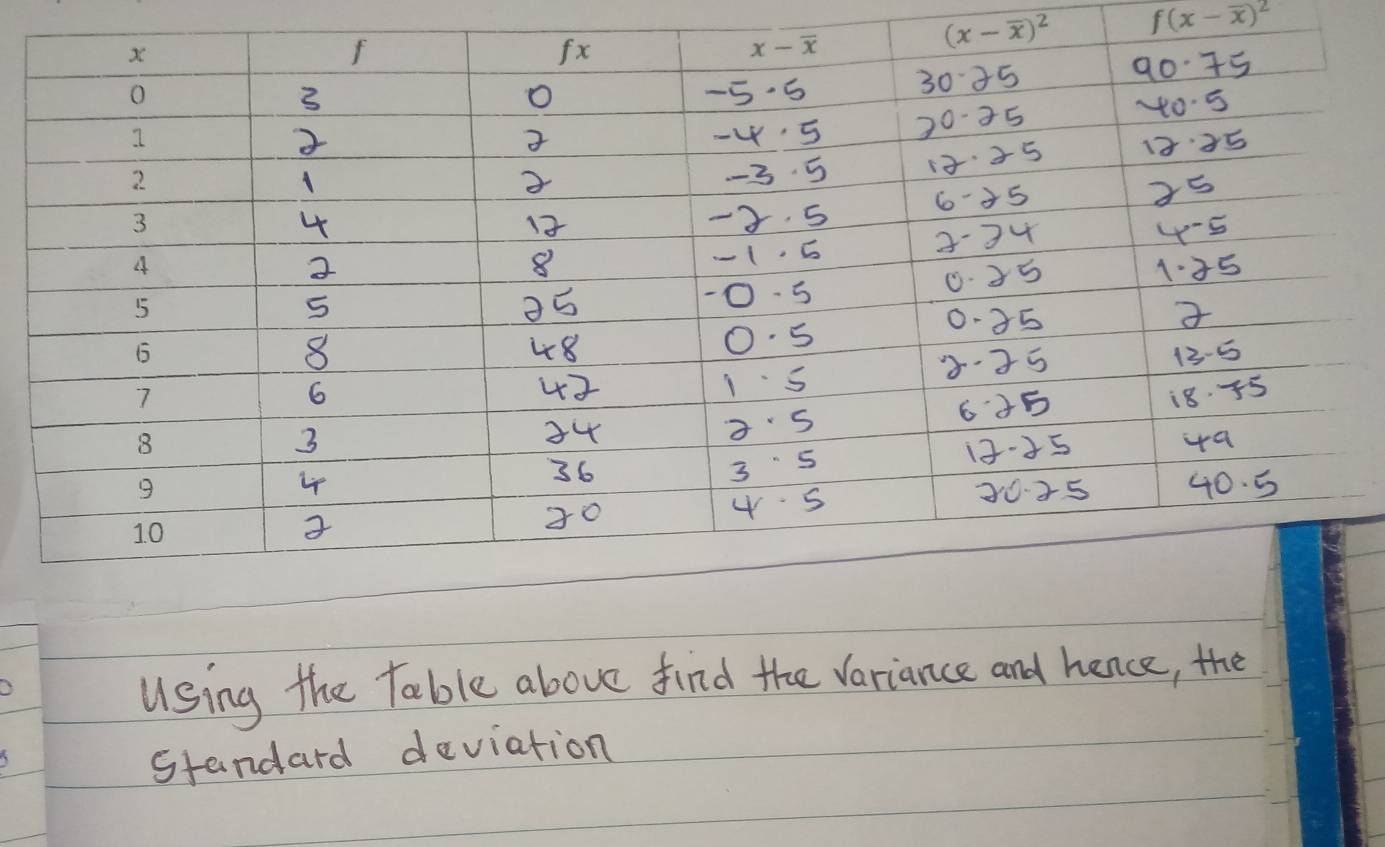 x f fx x - x̄ (x - x̄)² f(x - x̄)²
0 3 0 -5.5 30.25 90.75
1 2 2 -4.5 20.25 40.5
2 1 2 -3.5 12.25 12.25
3 4 12 -2.5 6.25 25
4 2 8 -1.5 2.24 4.5
5 5 25 -0.5 0.25 1.25
6 8 48 0.5 0.25 2
7 6 42 1.5 2.25 13.5
8 3 24 2.5 6.25 18.75
9 4 36 3.5 12.25 49
10 2 20 4.5 20.25 40.5
Using the Table above find the Variance and hence, the
standard deviation